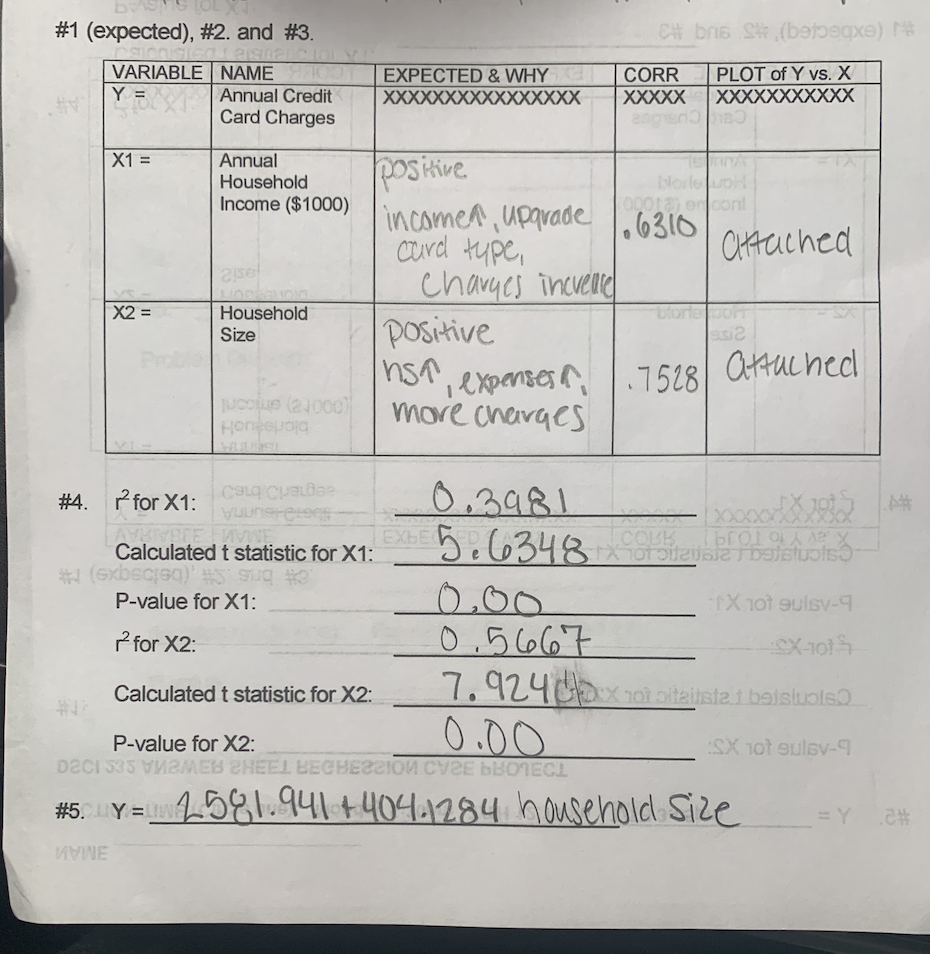 #1 (expected), #2. and #3.
VARIABLE NAME EXPECTED & WHY CORR PLOT of Y vs. X
Y = Annual Credit Card Charges XXXXXXXXXXXXXXXX XXXXX XXXXXXXXXXX
X1 = Annual Household Income ($1000)
positive
income↑, upgrade
card type,
charges increase
.6310
attached
X2 = Household Size
positive
hs↑, expenses↑,
more charges
.7528
attached
#4. r² for X1: 0.3981
Calculated t statistic for X1: 5.6348
P-value for X1: 0.00
r² for X2: 0.5667
Calculated t statistic for X2: 7.924
P-value for X2: 0.00
DSCI 232 ANSWER SHEET REGRESSION CASE PROJECT
#5. Y = 2581.941+404.1284 household size
NAME